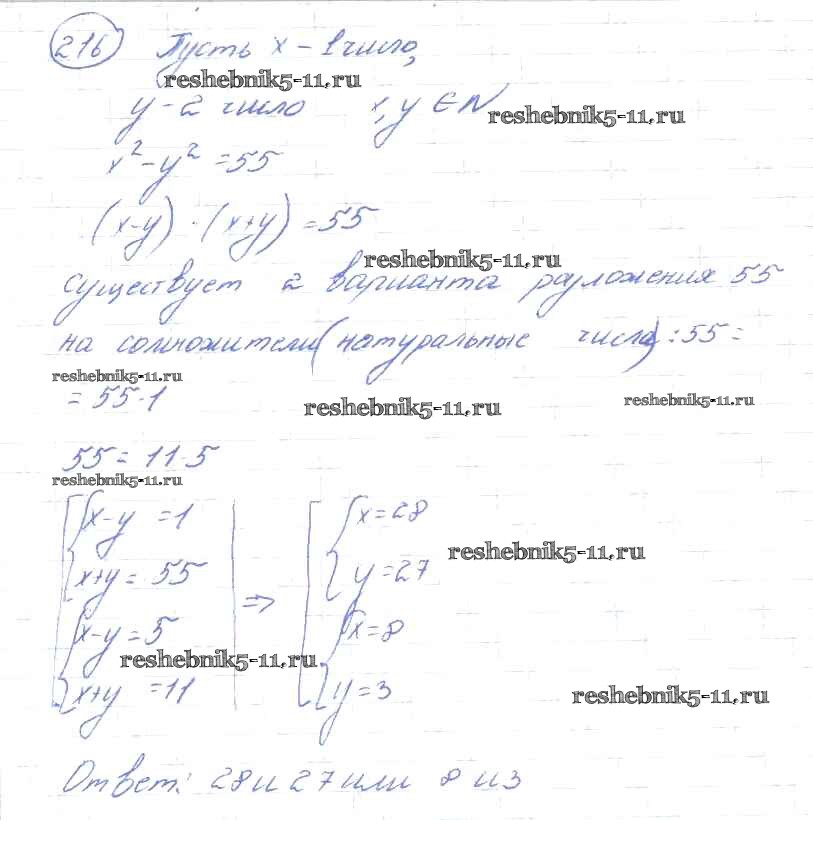 216 Пусть x - 1 число,
reshebnik5-11.ru
y - 2 число x, y ∈ N
reshebnik5-11.ru
x² - y² = 55
(x-y) · (x+y) = 55
reshebnik5-11.ru
существует 2 варианта разложения 55
на сомножители (натуральные числа) : 55 =
reshebnik5-11.ru
= 55·1
reshebnik5-11.ru
reshebnik5-11.ru
55 = 11·5
reshebnik5-11.ru
[ { x-y = 1 | [ { x = 28
reshebnik5-11.ru
x+y = 55 | => y = 27
{ x-y = 5 | { x = 8
reshebnik5-11.ru
x+y = 11 | y = 3
reshebnik5-11.ru
Ответ: 28 и 27 или 8 и 3